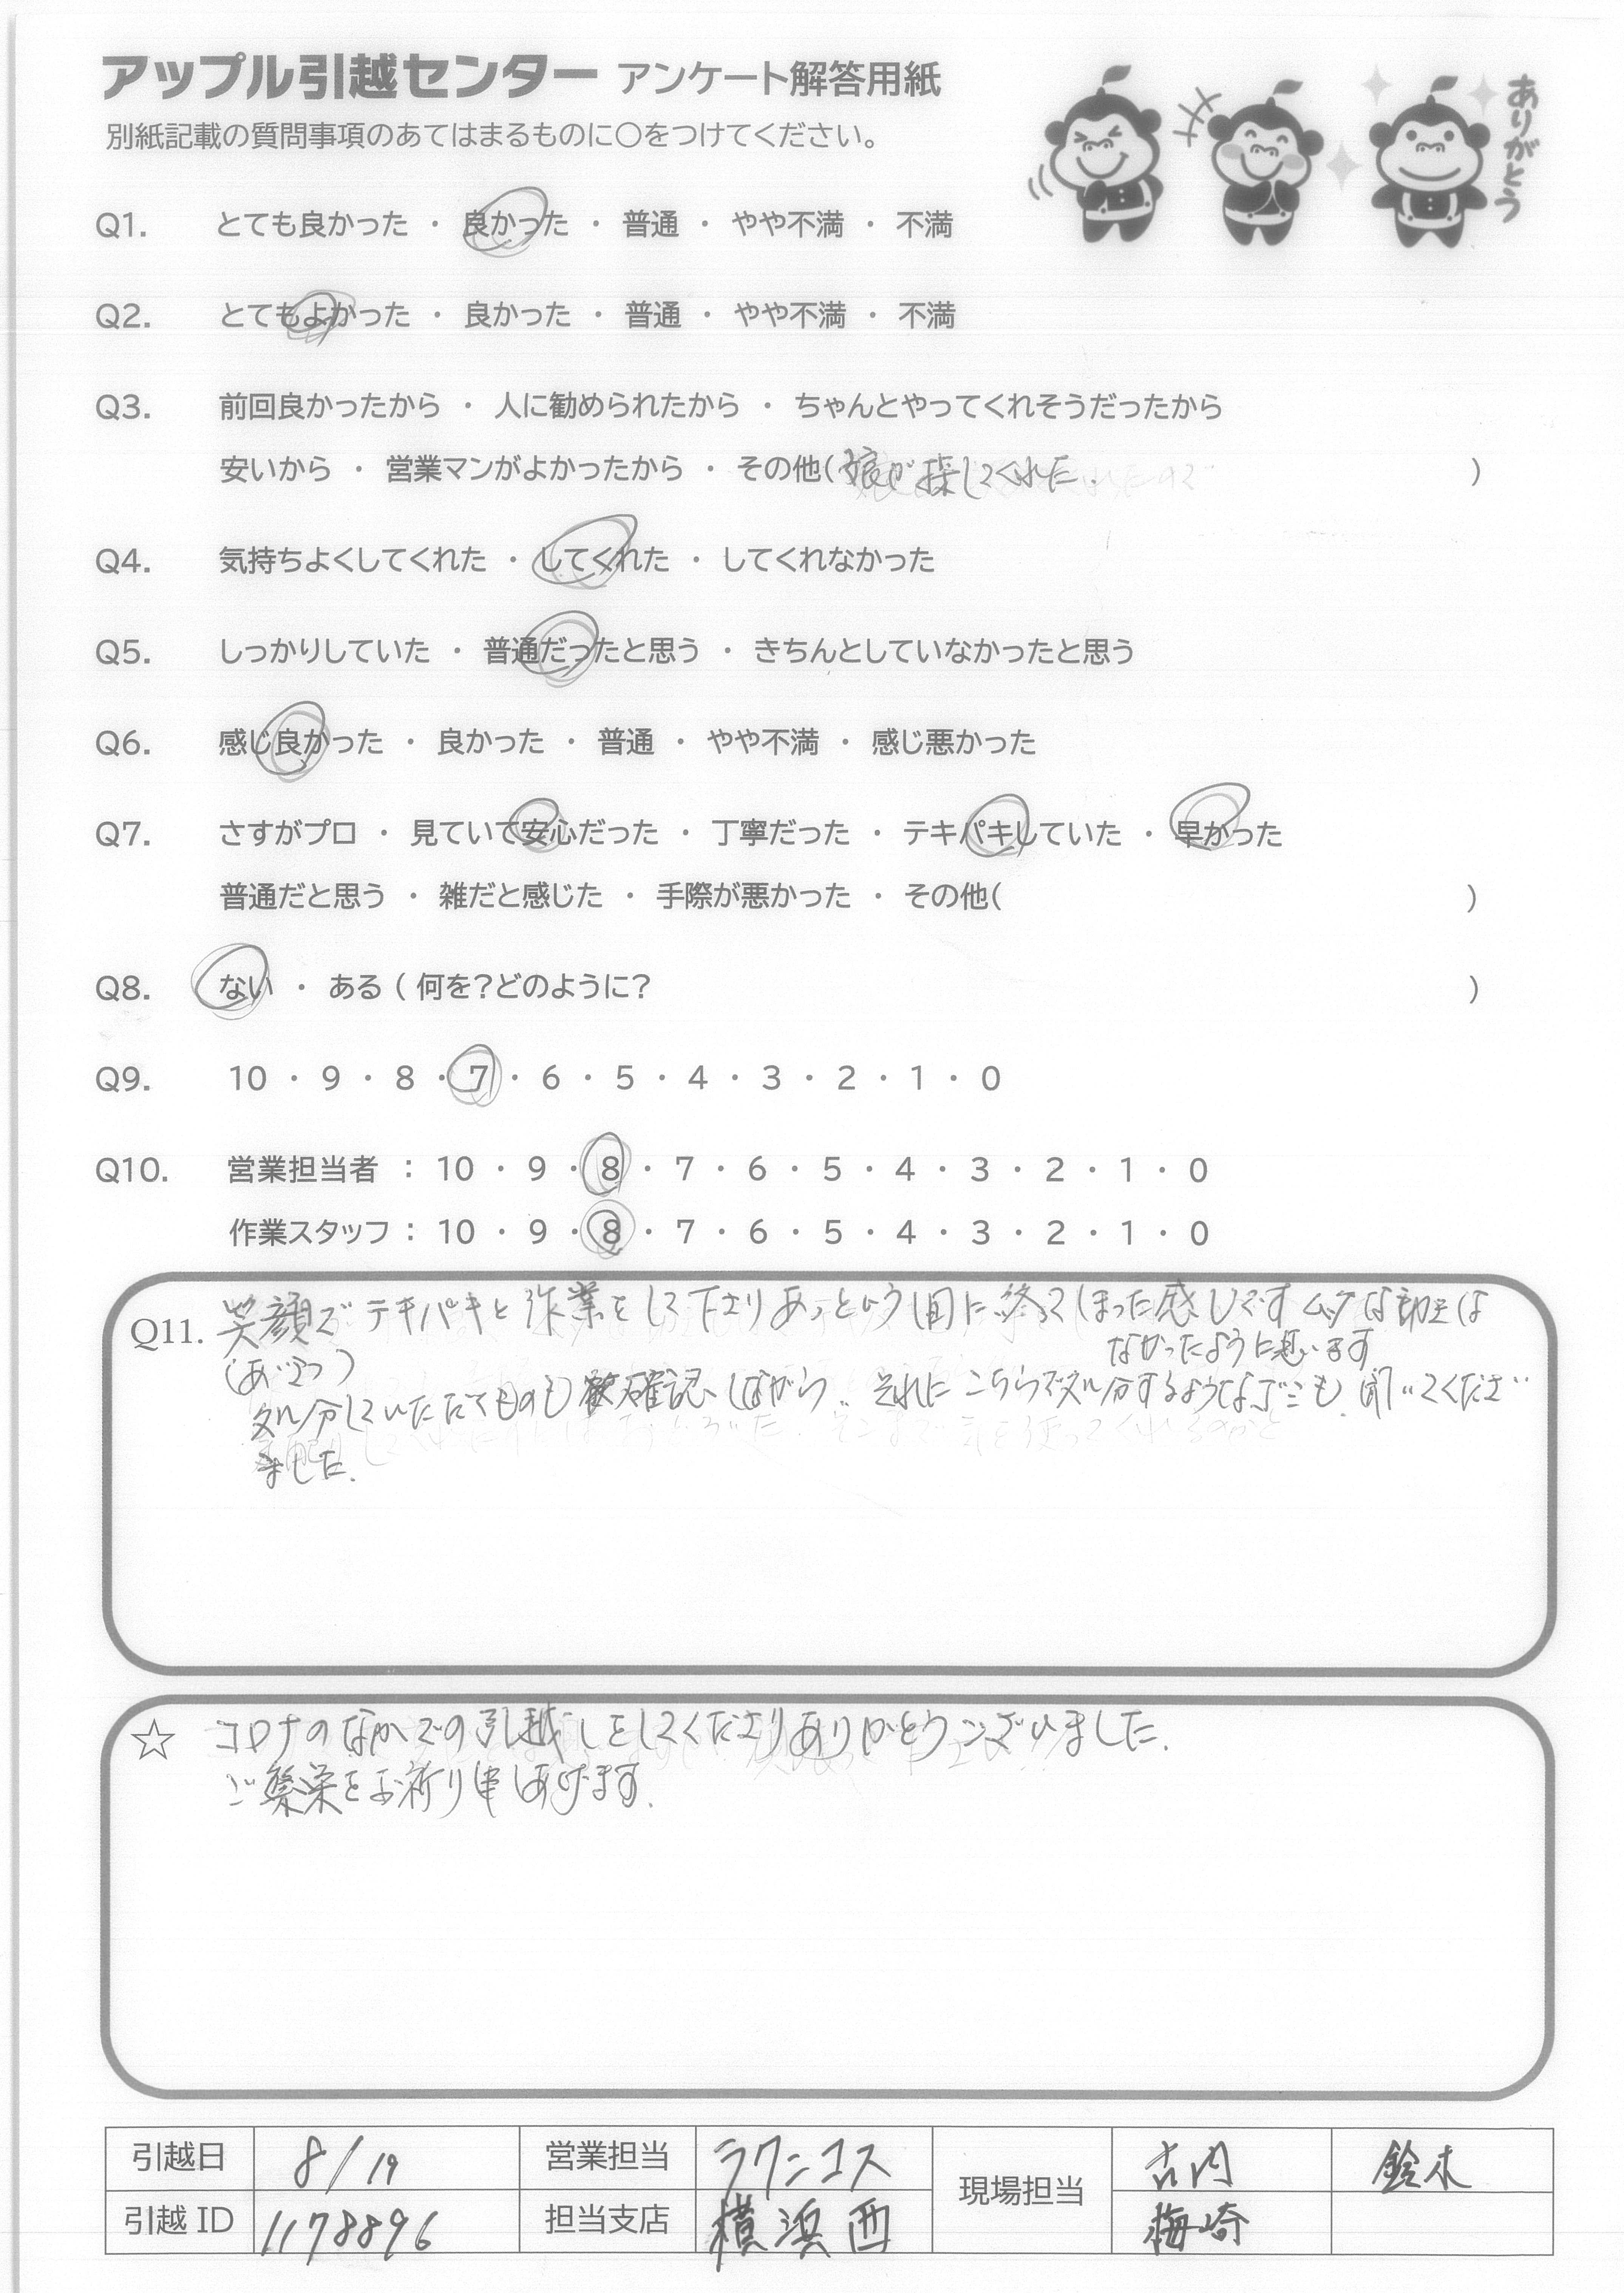 アップル引越センター アンケート解答用紙
別紙記載の質問事項のあてはまるものに○をつけてください。
ありがとう
Q1. とても良かった ・ 良かった ・ 普通 ・ やや不満 ・ 不満
Q2. とてもよかった ・ 良かった ・ 普通 ・ やや不満 ・ 不満
Q3. 前回良かったから ・ 人に勧められたから ・ ちゃんとやってくれそうだったから
安いから ・ 営業マンがよかったから ・ その他(娘が探してくれた. )
Q4. 気持ちよくしてくれた ・ してくれた ・ してくれなかった
Q5. しっかりしていた ・ 普通だったと思う ・ きちんとしていなかったと思う
Q6. 感じ良かった ・ 良かった ・ 普通 ・ やや不満 ・ 感じ悪かった
Q7. さすがプロ ・ 見ていて安心だった ・ 丁寧だった ・ テキパキしていた ・ 早かった
普通だと思う ・ 雑だと感じた ・ 手際が悪かった ・ その他( )
Q8. ない ・ ある ( 何を?どのように? )
Q9. 10 ・ 9 ・ 8 ・ 7 ・ 6 ・ 5 ・ 4 ・ 3 ・ 2 ・ 1 ・ 0
Q10. 営業担当者 : 10 ・ 9 ・ 8 ・ 7 ・ 6 ・ 5 ・ 4 ・ 3 ・ 2 ・ 1 ・ 0
作業スタッフ : 10 ・ 9 ・ 8 ・ 7 ・ 6 ・ 5 ・ 4 ・ 3 ・ 2 ・ 1 ・ 0
Q11. 笑顔でテキパキと作業をして下さりあっという間に終ってしまった感じです ムダな動きは
なかったように思います
(あいさつ)
処分していただくものも確認しながら、それにこちらで処分するようなゴミも聞いてくださ
ました.
☆ コロナのなかでの引越しをしてくださりありがとうございました.
ご繁栄をお祈り申しあげます.
引越日 8/19 営業担当 ラワンコス 現場担当 古内 鈴木
引越 ID 1178896 担当支店 横浜西 梅崎